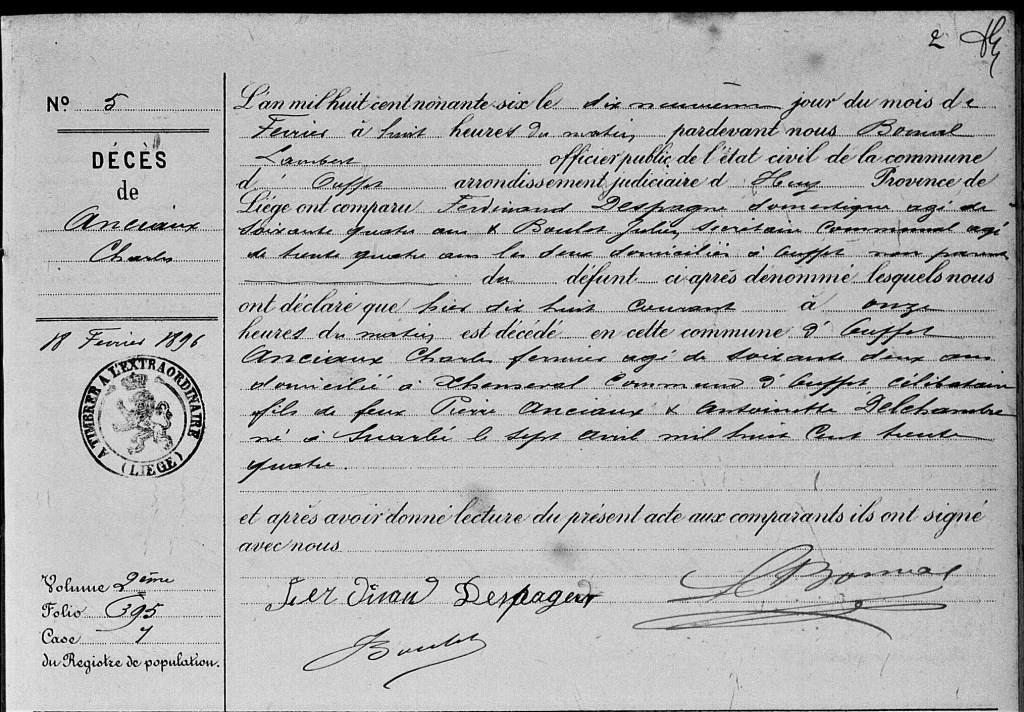 2
Nº 5
DÉCÈS
de
Anciaux
Charles
18 Fevrier 1896
A TIMBRER A L'EXTRAORDINAIRE
(LIEGE)
Volume 2ème
Folio 395
Case 7
du Registre de population.
L'an mil huit cent nonante-six le dix neuvième jour du mois de
Fevrier à huit heures du matin pardevant nous Bomal
Lambert officier public de l'état civil de la commune
d' Ouffet arrondissement judiciaire d Huy Province de
Liége ont comparu Ferdinand Despagne domestique agé de
soixante quatre ans & Boulet Julien Secretaire Communal agé
de trente quatre ans les deux domiciliés à Ouffet non parents
du défunt ci après dénommé lesquels nous
ont déclaré que hier dix huit courant à onze
heures du matin est décédé en cette commune d' Ouffet
Anciaux Charles fermier agé de soixante deux ans
domicilié à Xhenseval Commune d' Ouffet Célibataire
fils de feux Pierre Anciaux & Antoinette Delchambre
né à Suarlée le sept avril mil huit Cent trente
quatre.
et après avoir donné lecture du présent acte aux comparants ils ont signé
avec nous
L Bomal
Despagne
Boulet